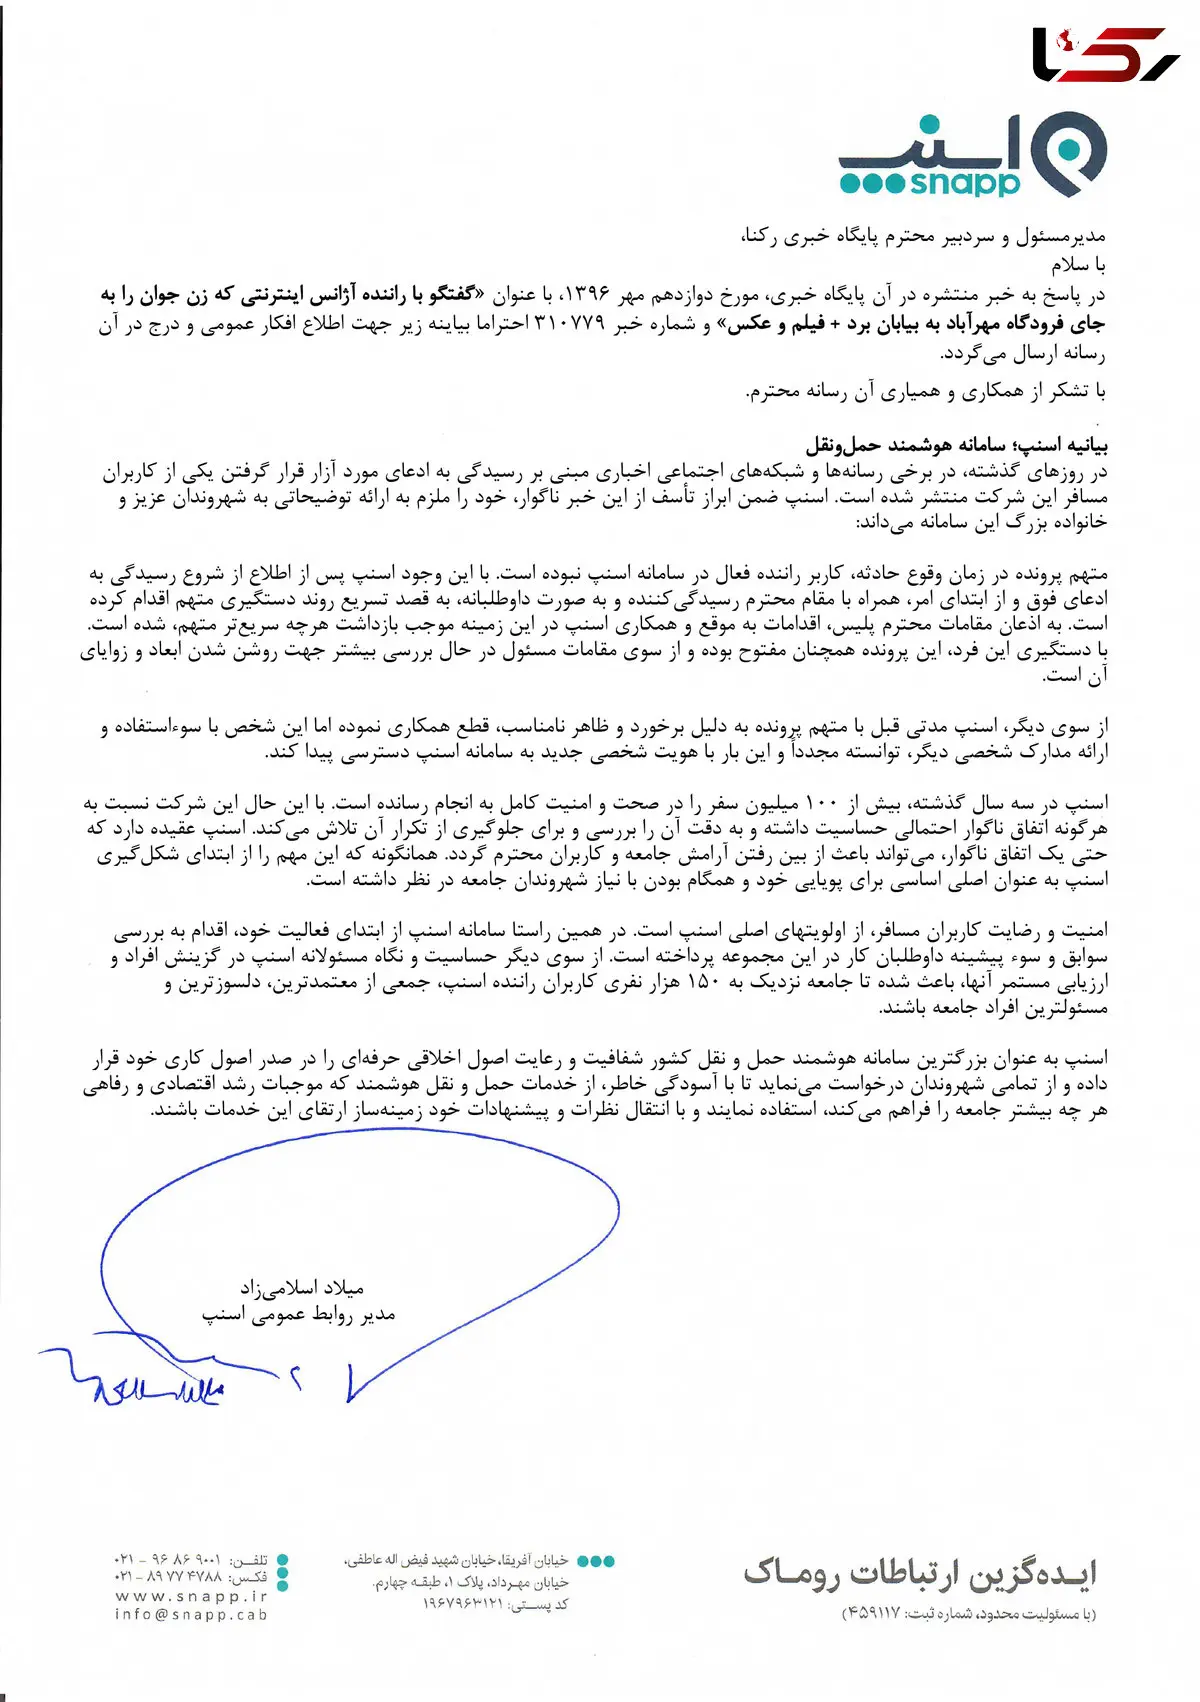 رکنا
اسنپ
snapp
مدیرمسئول و سردبیر محترم پایگاه خبری رکنا،
با سلام
در پاسخ به خبر منتشره در آن پایگاه خبری، مورخ دوازدهم مهر ۱۳۹۶، با عنوان «گفتگو با راننده آژانس اینترنتی که زن جوان را به
جای فرودگاه مهرآباد به بیابان برد + فیلم و عکس» و شماره خبر ۳۱۰۷۷۹ احتراما بیاینه زیر جهت اطلاع افکار عمومی و درج در آن
رسانه ارسال می‌گردد.
با تشکر از همکاری و همیاری آن رسانه محترم.
بیانیه اسنپ؛ سامانه هوشمند حمل‌ونقل
در روزهای گذشته، در برخی رسانه‌ها و شبکه‌های اجتماعی اخباری مبنی بر رسیدگی به ادعای مورد آزار قرار گرفتن یکی از کاربران
مسافر این شرکت منتشر شده است. اسنپ ضمن ابراز تأسف از این خبر ناگوار، خود را ملزم به ارائه توضیحاتی به شهروندان عزیز و
خانواده بزرگ این سامانه می‌داند:
متهم پرونده در زمان وقوع حادثه، کاربر راننده فعال در سامانه اسنپ نبوده است. با این وجود اسنپ پس از اطلاع از شروع رسیدگی به
ادعای فوق و از ابتدای امر، همراه با مقام محترم رسیدگی‌کننده و به صورت داوطلبانه، به قصد تسریع روند دستگیری متهم اقدام کرده
است. به اذعان مقامات محترم پلیس، اقدامات به موقع و همکاری اسنپ در این زمینه موجب بازداشت هرچه سریع‌تر متهم، شده است.
با دستگیری این فرد، این پرونده همچنان مفتوح بوده و از سوی مقامات مسئول در حال بررسی بیشتر جهت روشن شدن ابعاد و زوایای
آن است.
از سوی دیگر، اسنپ مدتی قبل با متهم پرونده به دلیل برخورد و ظاهر نامناسب، قطع همکاری نموده اما این شخص با سوءاستفاده و
ارائه مدارک شخصی دیگر، توانسته مجدداً و این بار با هویت شخصی جدید به سامانه اسنپ دسترسی پیدا کند.
اسنپ در سه سال گذشته، بیش از ۱۰۰ میلیون سفر را در صحت و امنیت کامل به انجام رسانده است. با این حال این شرکت نسبت به
هرگونه اتفاق ناگوار احتمالی حساسیت داشته و به دقت آن را بررسی و برای جلوگیری از تکرار آن تلاش می‌کند. اسنپ عقیده دارد که
حتی یک اتفاق ناگوار، می‌تواند باعث از بین رفتن آرامش جامعه و کاربران محترم گردد. همانگونه که این مهم را از ابتدای شکل‌گیری
اسنپ به عنوان اصلی اساسی برای پویایی خود و همگام بودن با نیاز شهروندان جامعه در نظر داشته است.
امنیت و رضایت کاربران مسافر، از اولویتهای اصلی اسنپ است. در همین راستا سامانه اسنپ از ابتدای فعالیت خود، اقدام به بررسی
سوابق و سوء پیشینه داوطلبان کار در این مجموعه پرداخته است. از سوی دیگر حساسیت و نگاه مسئولانه اسنپ در گزینش افراد و
ارزیابی مستمر آنها، باعث شده تا جامعه نزدیک به ۱۵۰ هزار نفری کاربران راننده اسنپ، جمعی از معتمدترین، دلسوزترین و
مسئولترین افراد جامعه باشند.
اسنپ به عنوان بزرگترین سامانه هوشمند حمل و نقل کشور شفافیت و رعایت اصول اخلاقی حرفه‌ای را در صدر اصول کاری خود قرار
داده و از تمامی شهروندان درخواست می‌نماید تا با آسودگی خاطر، از خدمات حمل و نقل هوشمند که موجبات رشد اقتصادی و رفاهی
هر چه بیشتر جامعه را فراهم می‌کند، استفاده نمایند و با انتقال نظرات و پیشنهادات خود زمینه‌ساز ارتقای این خدمات باشند.
میلاد اسلامی‌زاد
مدیر روابط عمومی اسنپ
ایده‌گزین ارتباطات روماک
(با مسئولیت محدود، شماره ثبت: ۴۵۹۱۱۷)
خیابان آفریقا، خیابان شهید فیض اله عاطفی،
خیابان مهرداد، پلاک ۱، طبقه چهارم.
کد پستی: ۱۹۶۷۹۶۳۱۲۱
تلفن: ۹۰۰۱ ۸۶ ۹۶ – ۰۲۱
فکس: ۴۷۸۸ ۷۷ ۸۹ – ۰۲۱
www.snapp.ir
info@snapp.cab